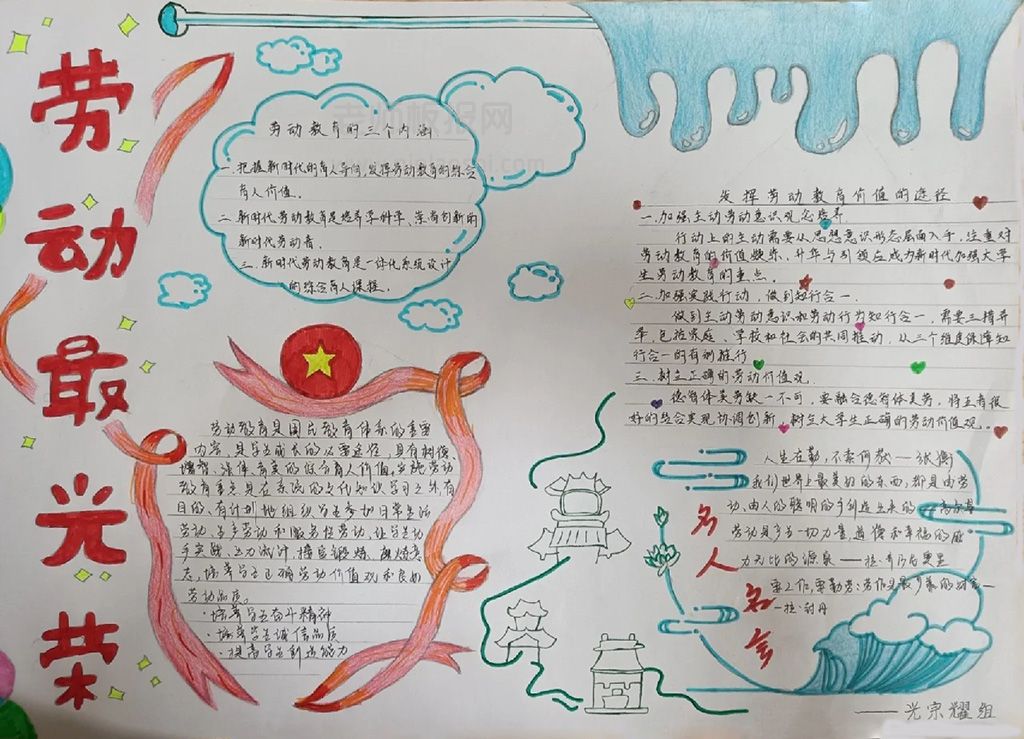 劳动最光荣
劳动教育的三个内涵
一.把握新时代的育人导向,发挥劳动教育的综合
育人价值.
二.新时代劳动教育是培养学科学、崇尚创新的
新时代劳动者.
三.新时代劳动教育是一体化系统设计
的综合育人课程.
劳动教育是国民教育体系的重要
内容,是学生成长的必要途径,具有树德、
增智、强体、育美的综合育人价值.实施劳动
教育重点是在系统的文化知识学习之外,有
目的、有计划地组织学生参加日常生活
劳动、生产劳动和服务性劳动,让学生动
手实践、出力流汗,接受锻炼、磨炼意
志,培养学生正确劳动价值观和良好
劳动品质。
·培养学生奋斗精神
·培养学生诚信品质
·提高学生创造能力
发挥劳动教育价值的途径
一.加强主动劳动意识观念培养
行动上的主动需要从思想意识形态层面入手,注重对
劳动教育的价值熟步、升华与引领应成为新时代加强大学
生劳动教育的重点。
二.加强实践行动,做到知行合一.
做到主动劳动意识和劳动行为知行合一,需要三措并
举,包括家庭、学校和社会的共同推动,从三个维度保障知
行合一的有利推行
三.树立正确的劳动价值观.
德智体美劳缺一不可,要融合德智体美劳,将五者很
好的结合实现协调创新,树立大学生正确的劳动价值观。
名人名言
人生在勤,不索何获——张衡
我们世界上最美好的东西,都是由劳
动、由人的聪明的手创造出来的——高尔基
劳动是产生一切力量、道德和幸福的威
力无比的源泉——拉·乔乃尼奥里
要工作,要勤劳:劳作是最可靠的财富——
——拉·封丹
——光宗耀组